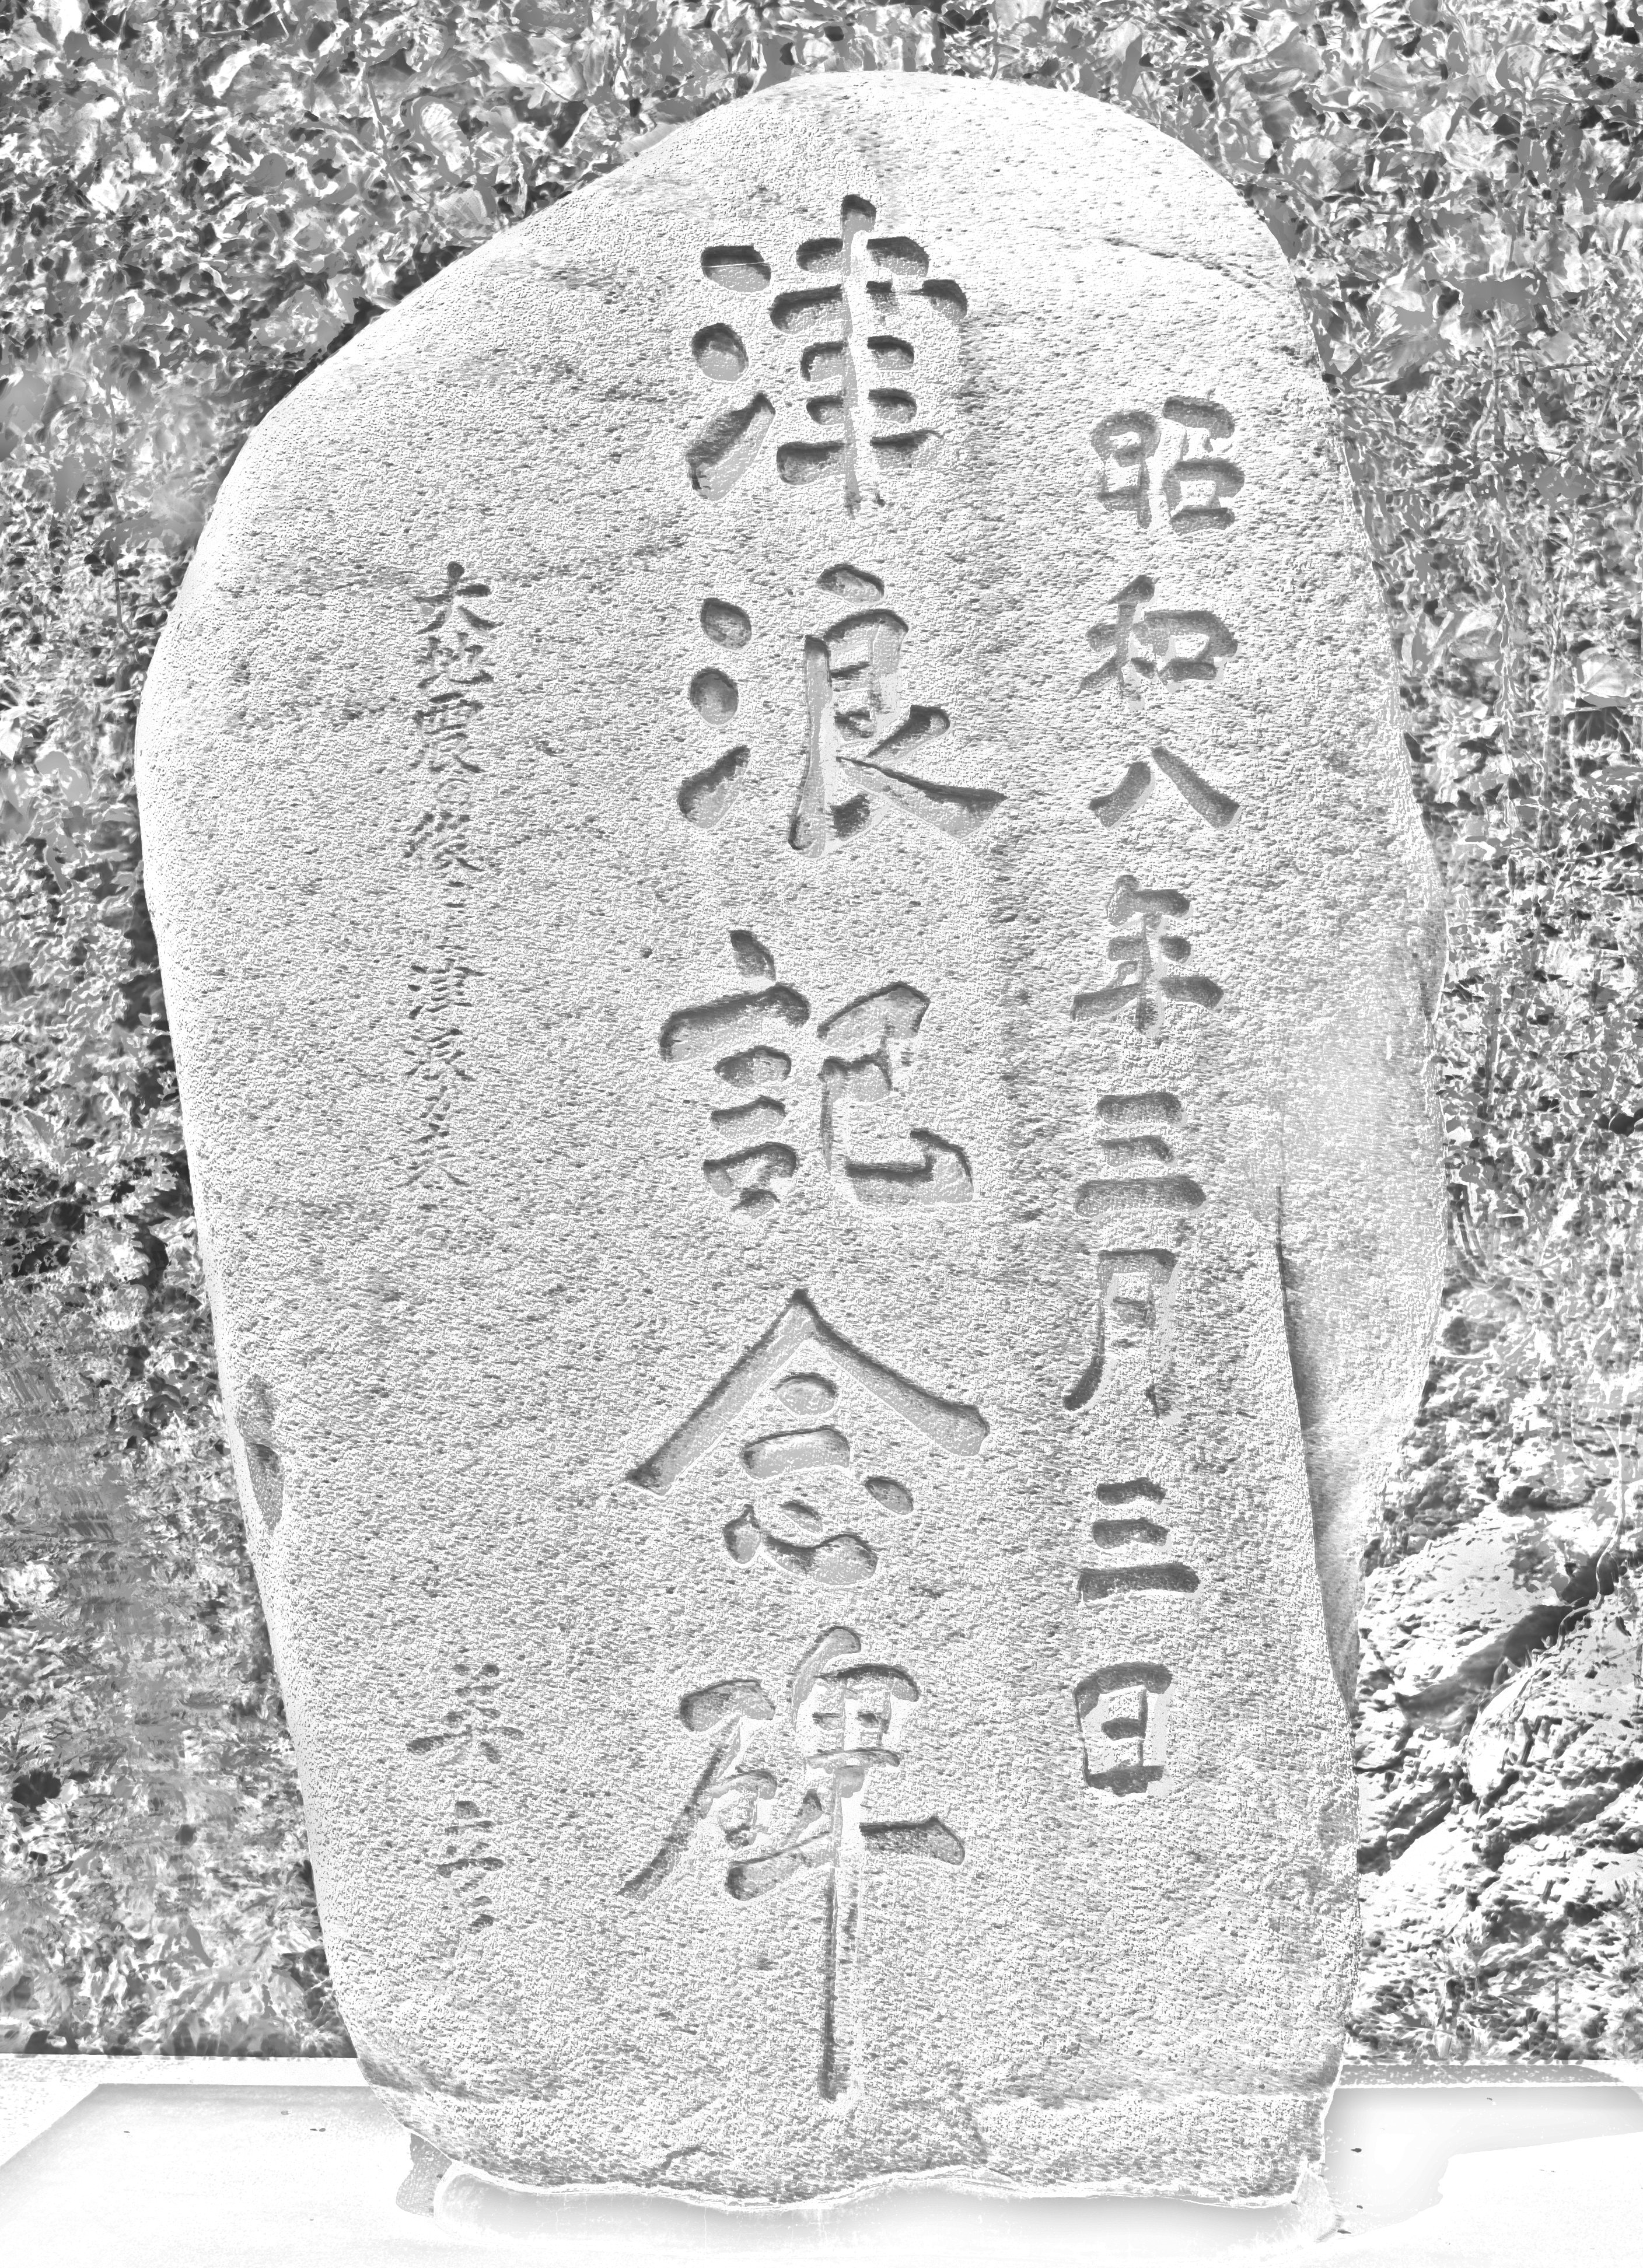 昭和八年三月三日
津浪記念碑
大地震の後津浪